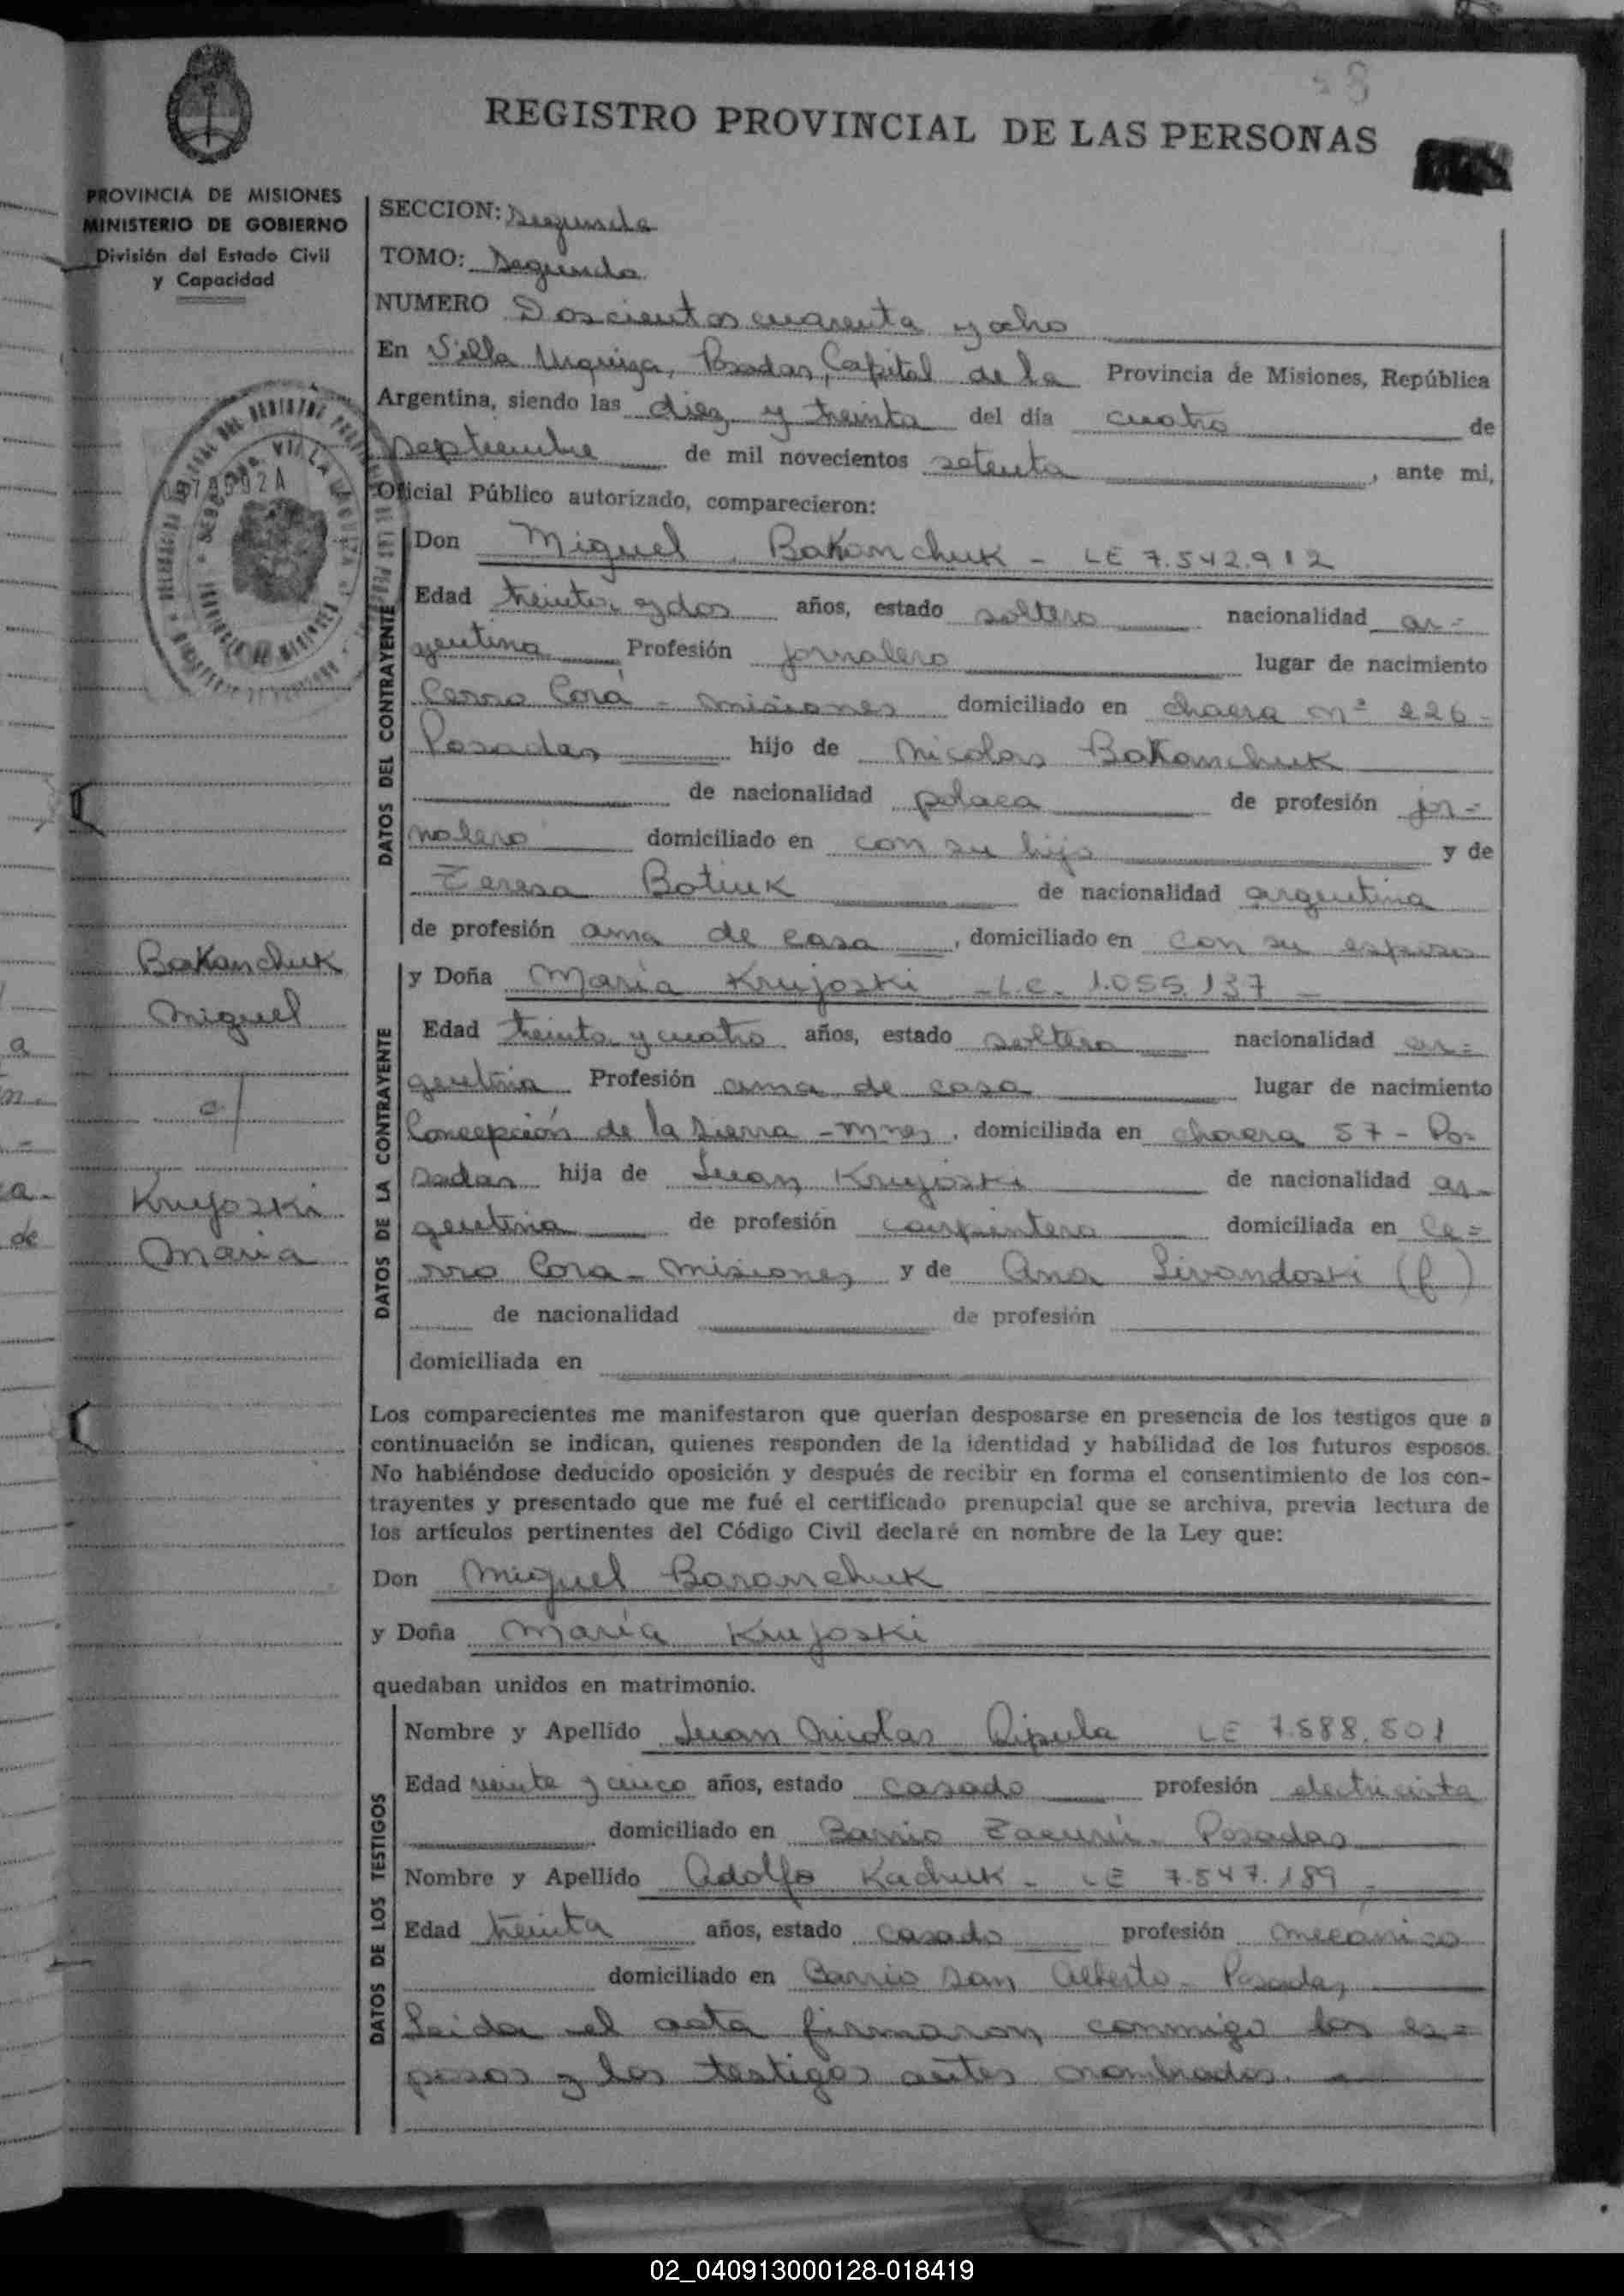 REGISTRO PROVINCIAL DE LAS PERSONAS
PROVINCIA DE MISIONES
MINISTERIO DE GOBIERNO
División del Estado Civil
y Capacidad
SECCION: Segunda
TOMO: Segundo
NUMERO Doscientos cuarenta y ocho
En Villa Urquiza, Posadas, Capital de la Provincia de Misiones, República
Argentina, siendo las diez y treinta del día cuatro de
septiembre de mil novecientos setenta, ante mi,
Oficial Público autorizado, comparecieron:
DATOS DEL CONTRAYENTE
Don Miguel Bakanchuk - LE 7.542.912
Edad treinta y dos años, estado soltero nacionalidad ar=
gentina Profesión jornalero lugar de nacimiento
Cerro Corá - Misiones domiciliado en chacra Nº 226 -
Posadas hijo de Nicolas Bakanchuk
de nacionalidad polaca de profesión jor=
nalero domiciliado en con su hijo y de
Teresa Botiuk de nacionalidad argentina
de profesión ama de casa, domiciliado en con su esposo
DATOS DE LA CONTRAYENTE
y Doña María Krujoski - L.C. 1.055.137 -
Edad treinta y cuatro años, estado soltera nacionalidad ar=
gentina Profesión ama de casa lugar de nacimiento
Concepción de la Sierra - Mnes, domiciliada en chacra 57 - Po=
sadas hija de Juan Krujoski de nacionalidad ar=
gentina de profesión carpintero domiciliada en Ce=
rro Cora - Misiones y de Ana Livandoski (f)
de nacionalidad de profesión
domiciliada en
Bakanchuk
Miguel
c/
Krujoski
Maria
Los comparecientes me manifestaron que querían desposarse en presencia de los testigos que a
continuación se indican, quienes responden de la identidad y habilidad de los futuros esposos.
No habiéndose deducido oposición y después de recibir en forma el consentimiento de los con-
trayentes y presentado que me fué el certificado prenupcial que se archiva, previa lectura de
los artículos pertinentes del Código Civil declaré en nombre de la Ley que:
Don Miguel Baranchuk
y Doña María Krujoski
quedaban unidos en matrimonio.
DATOS DE LOS TESTIGOS
Nombre y Apellido Juan Nicolas Ripula LE 7.588.501
Edad veinte y cinco años, estado casado profesión electricista
domiciliado en Barrio Posadas
Nombre y Apellido Adolfo Kachuk - LE 7.547.189 -
Edad treinta años, estado casado profesión mecanico
domiciliado en Barrio San Alberto - Posadas
Leida el acta firmaron conmigo los es=
posos y los testigos antes nombrados.
02_040913000128-018419